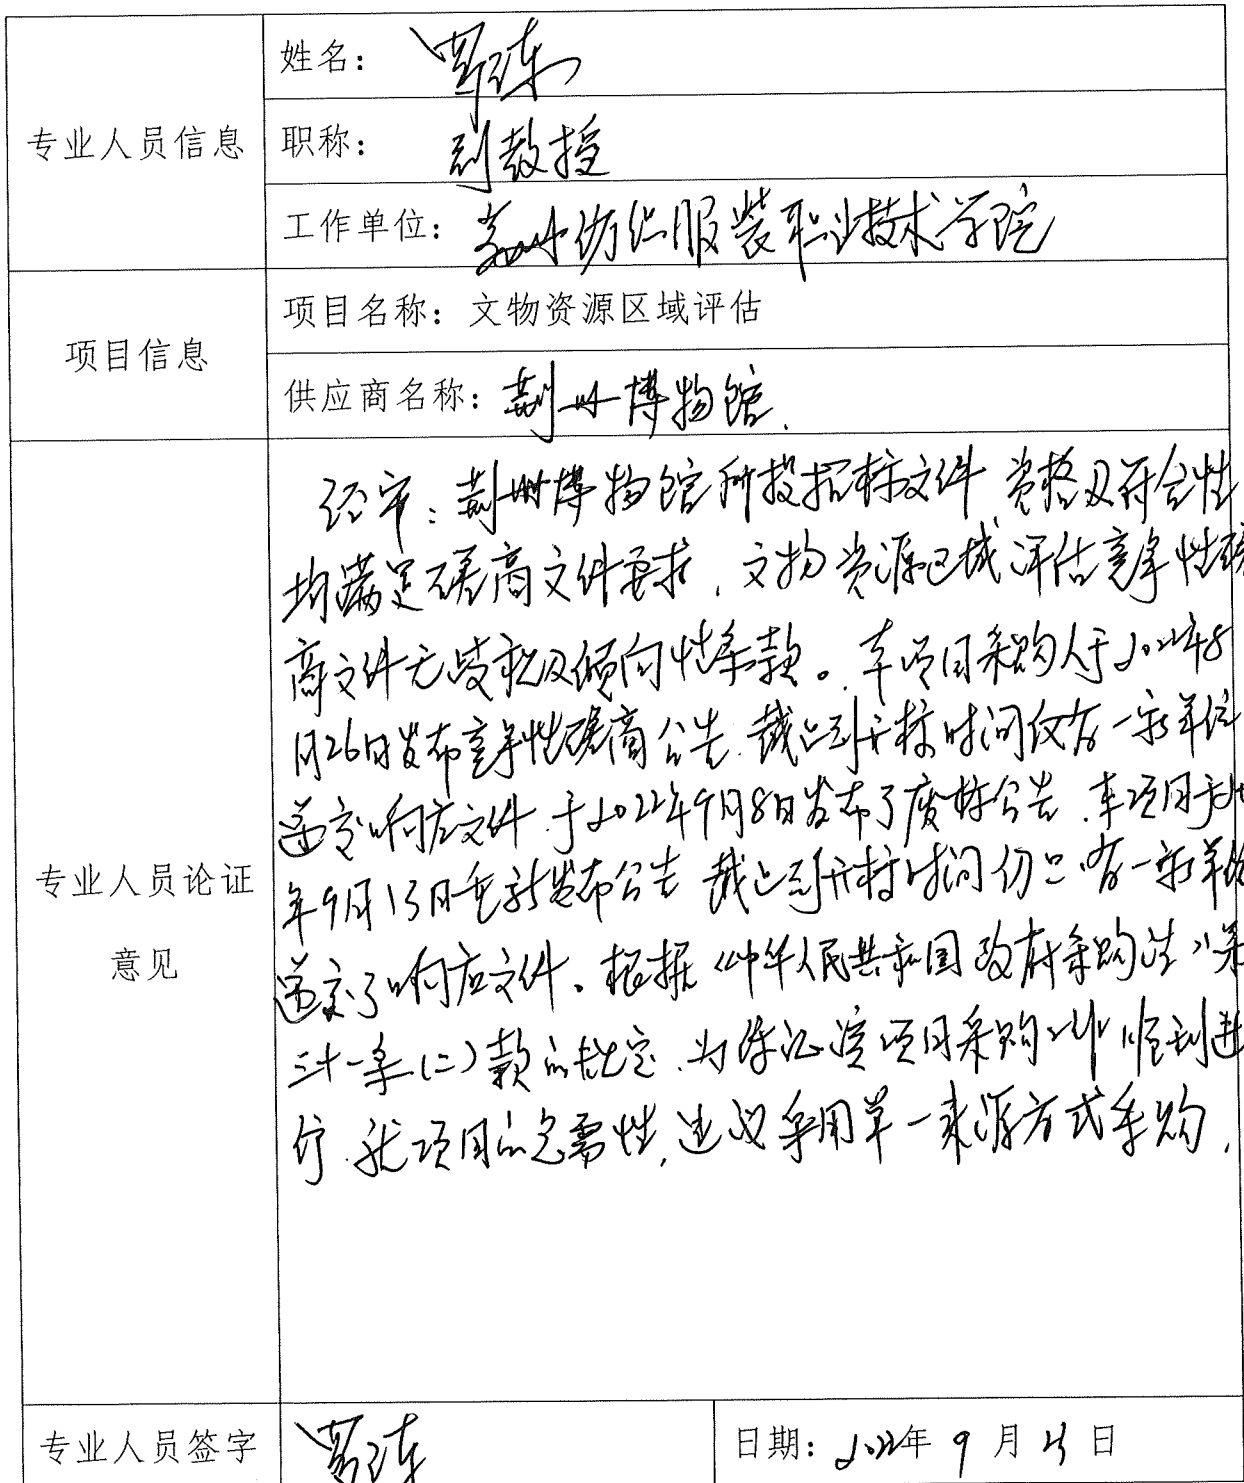 姓名：
专业人员信息
职称：副教授
工作单位：纺织服装职业技术学院
项目名称：文物资源区域评估
项目信息
供应商名称：荆州博物馆.
经审：荆州博物馆所投招标文件资格及符合性
均满足磋商文件要求，文物资源区域评估竞争性磋
商文件无歧视及倾向性条款。本项目采购人于2022年8
月26日发布竞争性磋商公告.截止到开标时间仅有一家单位
递交响应文件.于2022年9月8日发布了废标公告.本项目于
年9月13日重新发布公告 截止到开标时间仍只有一家单位
递交了响应文件。根据《中华人民共和国政府采购法》第
三十一条(二)款的规定.为保证该项目采购工作顺利进
行.就项目的急需性,建议采用单一来源方式采购.
专业人员论证
意见
专业人员签字
日期：2022年9月 日